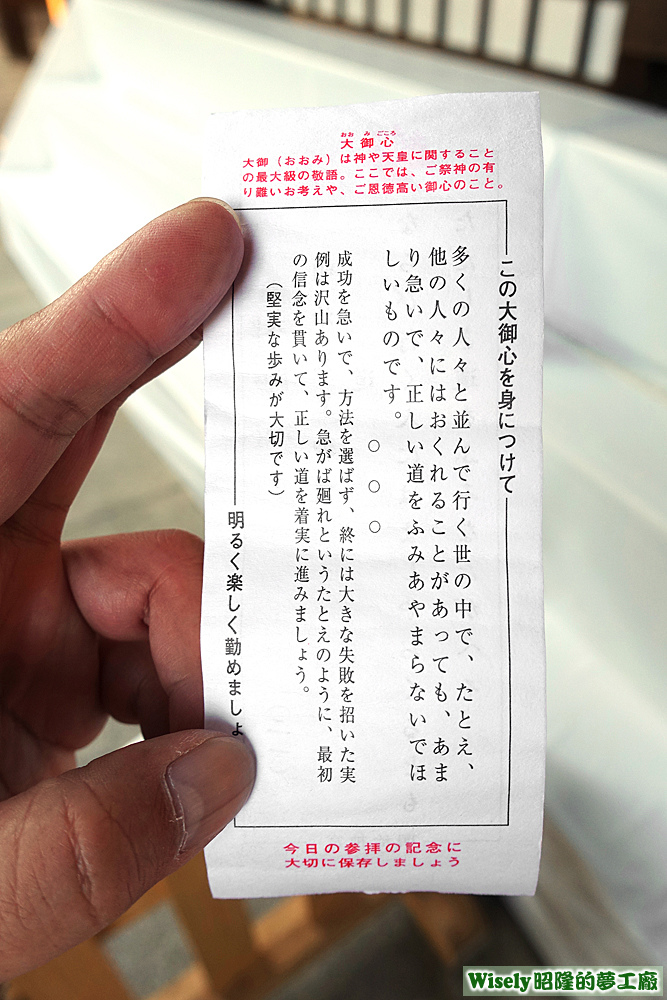 おおみごころ
大御心
大御（おおみ）は神や天皇に関すること
の最大級の敬語。ここでは、ご祭神の有
り難いお考えや、ご恩德高い御心のこと。
この大御心を身につけて
多くの人々と並んで行く世の中で、たとえ、
他の人々にはおくれることがあっても、あま
り急いで、正しい道をふみあやまらないでほ
しいものです。
○○○
成功を急いで、方法を選ばず、終には大きな失敗を招いた実
例は沢山あります。急がば廻れというたとえのように、最初
の信念を貫いて、正しい道を着実に進みましょう。
（堅実な歩みが大切です）
明るく楽しく勤めましょ
今日の参拝の記念に
大切に保存しましょう
Wisely昭隆的夢工廠